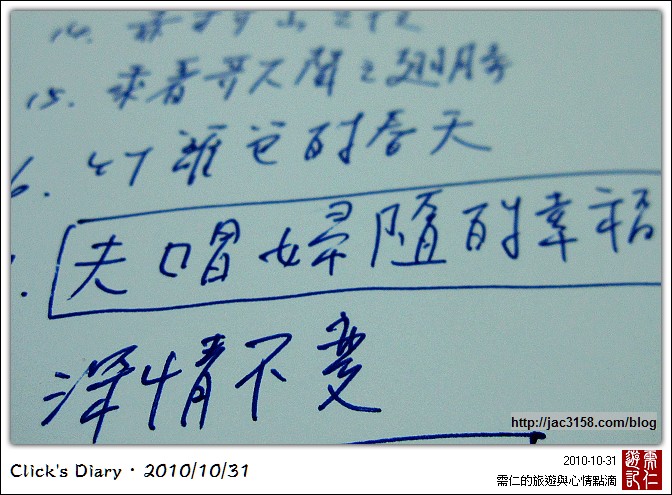 14.
15. 乘着歌聲之翅膀
6. 的春天
夫唱婦隨的幸福
深情不變
http://jac3158.com/blog
Click's Diary · 2010/10/31
2010-10-31
需仁的旅遊與心情點滴
需仁
遊記